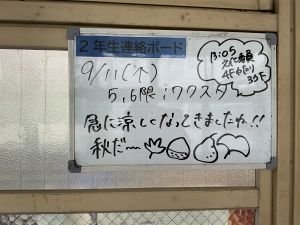 2年生連絡ボード
9/11(木)
5,6限:ワクスタ
急に涼しくなってきましたね!!
秋だ〜
13:05
文化委員